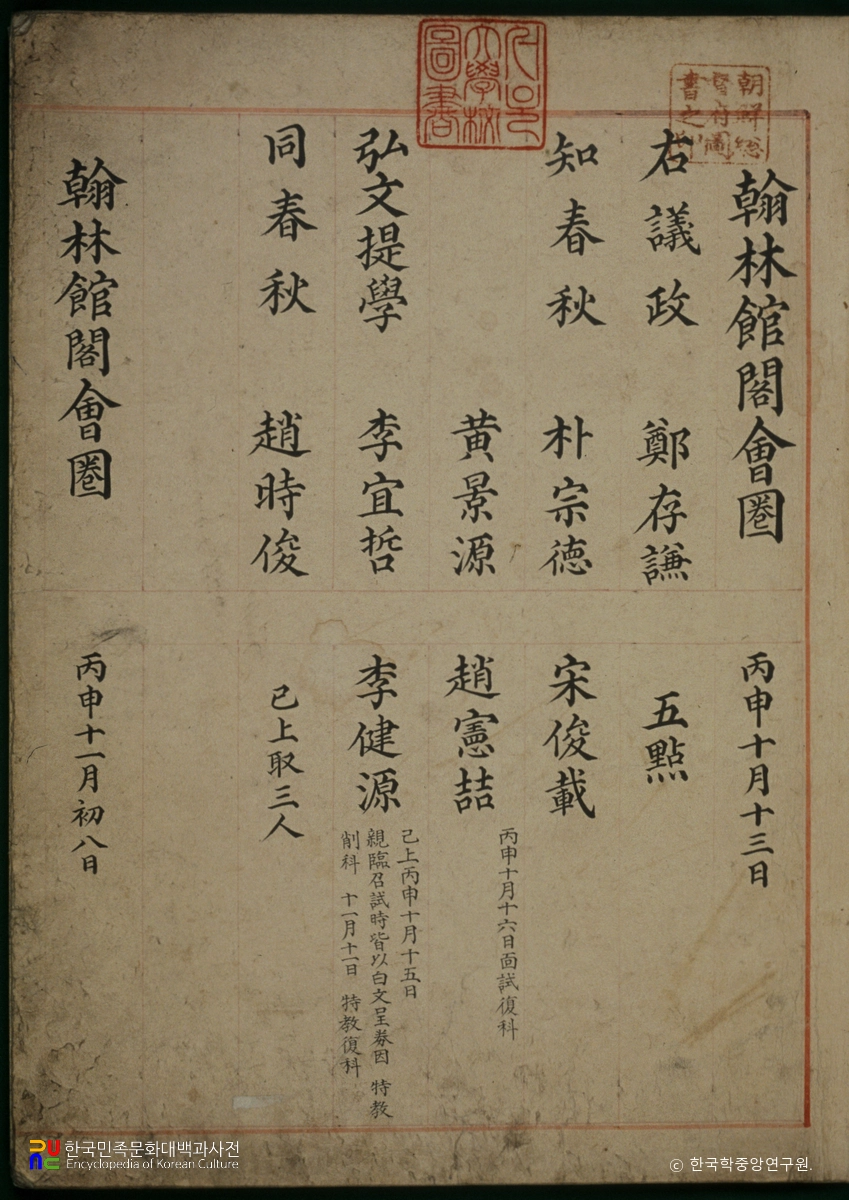 翰林館閣會圈
丙申十月十三日
右議政 鄭存謙
五點
知春秋 朴宗德
宋俊載
黃景源
趙憲喆
丙申十月十六日面試復科
弘文提學 李宜哲
李健源
已上丙申十月十五日
親臨召試時皆以白文呈券因 特敎
削科 十一月十一日 特敎復科
同春秋 趙時俊
已上取三人
翰林館閣會圈
丙申十一月初八日
朝鮮總
督府圖
書之印
大學校
圖書
한국민족문화대백과사전
Encyclopedia of Korean Culture
ⓒ 한국학중앙연구원.